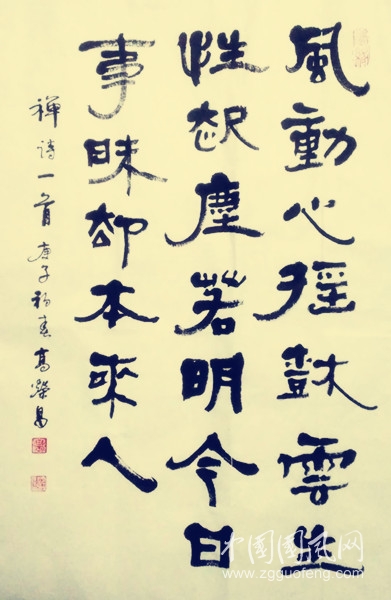 風動心搖樹雲生
性起塵若明今日
事昧卻本來人
禪詩一首 庚子初春 高
中国国风网
www.zgguofeng.com